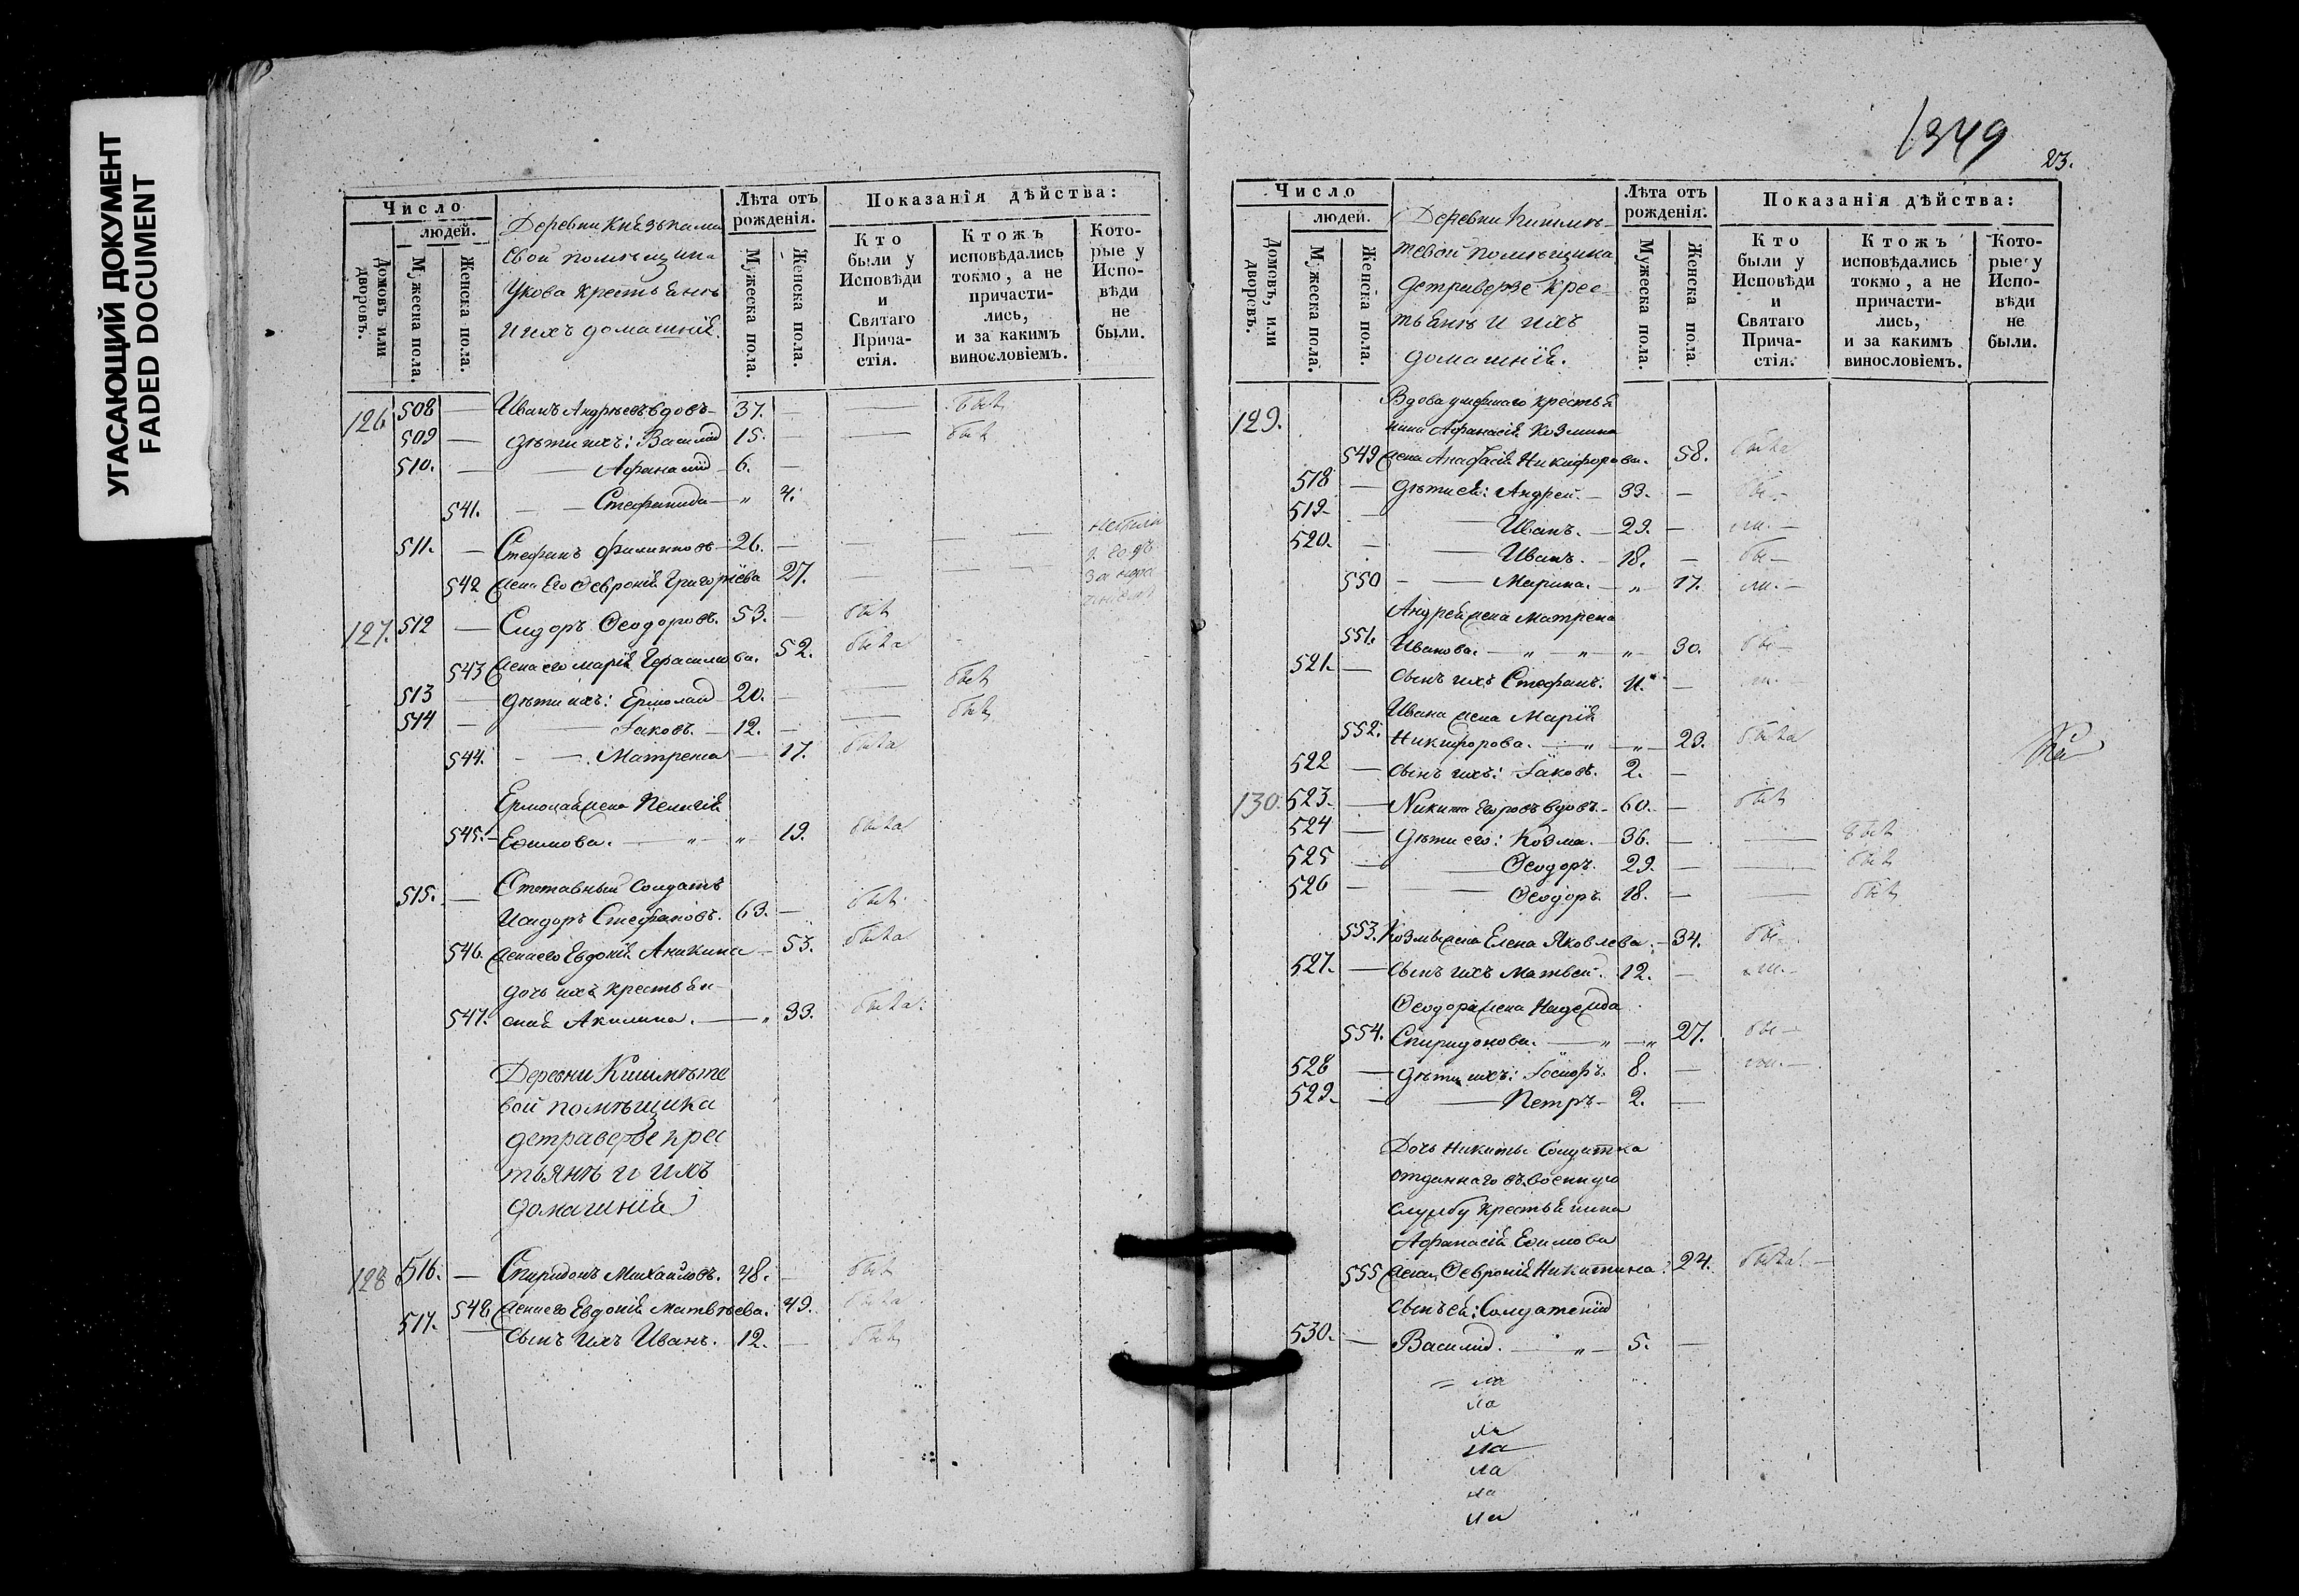 УГАСАЮЩИЙ ДОКУМЕНТ
FADED DOCUMENT
Число
людей.
Домовъ или дворовъ.
Мужеска пола.
Женска пола.
Деревни
помѣщика
Укова крестьянъ
и ихъ домашнія.
Лѣта отъ рожденія.
Мужеска пола.
Женска пола.
Показанія дѣйства:
Кто были у Исповѣди и Святаго Прича-стія.
Ктожъ исповѣдались токмо, а не причасти-лись, и за какимъ винословіемъ.
Кото-рые у Испо-вѣди не были.
126 508 — Иванъ Андреевъ вдовъ — 37. — — былъ
509 — дѣти ихъ: Василій 15. — — былъ
510. — — Афанасій — 6. —
541. — — Стефанида — „ 4.
511. — Стефанъ Филиповъ — 26. — — — не были
542 жена его Феvронія Григорьева 27. — — —
127. 512 — Сидоръ Ѳеодоровъ. 53. — былъ
543 жена его Марія Герасимова. 52. была
513 — дѣти ихъ: Ермолай 20. — — былъ
514 — — Іаковъ. — 12. — — былъ
544. — — Матрена — 17. была
Ермолая жена Пелагія
545. — Ефимова. — „ — „ 19. была
515. — Отставный солдатъ
Исидоръ Стефановъ. 63. — былъ
546. жена его Евдокія Аникина — 53. была
дочь ихъ крестьян-
547. ская Акилина. — „ 33. была.
Деревни Кишмѣте
вой помѣщика
детраверзе крес
тьянъ и ихъ
домашнія
128 516. — Спиридонъ Михайловъ. 48. — былъ
548 жена его Евдокія Матвѣева. 49. была
517. — сынъ ихъ Иванъ. 12. — былъ
1349
23.
Число
людей.
Домовъ, или дворовъ.
Мужеска пола.
Женска пола.
Деревни Кишмѣ-
тевой помѣщика
детраверзе крес-
тьянъ и ихъ
домашнія.
Лѣта отъ рожденія.
Мужеска пола.
Женска пола.
Показанія дѣйства:
Кто были у Исповѣди и Святаго Прича-стія.
Ктожъ исповѣдались токмо, а не причасти-лись, и за какимъ винословіемъ.
Кото-рые у Испо-вѣди не были.
129. Вдова умершаго крестья
нина Афанасія Козмина
549 жена Анастасія Никифорова. 58. была
518 — дѣти ея: Андрей. — 33. — бы —
519 — — Иванъ. — 29. — ли. —
520. — — Иванъ. — 18. — бы —
550 — — Марина. — „ — 17. ли. —
Андрея жена Матрена
551. Иванова. — „ — „ — „ 30. бы —
521. — сынъ ихъ Стефанъ. 11. — ли. —
Ивана жена Марія
552. Никифорова. — „ — „ — 23. была
522 — сынъ ихъ: Іаковъ. 2. —
130. 523. — Никита Егоровъ вдовъ. — 60. — былъ
524 — дѣти его: Козма. — 36. — — былъ
525 — — Ѳеодоръ. 29. — — былъ
526 — — Ѳеодоръ. 18. — — былъ
553. Козмы жена Елена Яковлева. — 34. бы —
527. — сынъ ихъ Матвей. 12. — ли. —
Ѳеодора жена Надежда
554. Спиридонова. — „ — „ 27. бы —
528 — дѣти ихъ: 8. — ли. —
529. — — Петръ — 2. —
Дочь Никиты Солдатка
отданнаго въ военную
службу крестьянина
Афанасія Ефимова
555 жена Ѳевронія Никитина. 24. была. —
сынъ ея: Солдатскій
530. — Василій. — „ — 5. —
= ла
ла
ла
ла
ла
ла
ла